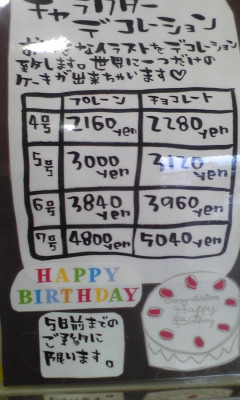 キャラクター
デコレーション
お好きなイラストをデコレーション
致します。世界に一つだけの
ケーキが出来ちゃいます♡
プレーン チョコレート
4号 2160yen 2280yen
5号 3000yen 3120yen
6号 3840yen 3960yen
7号 4800yen 5040yen
HAPPY
BIRTHDAY
5日前までの
ご予約に
限ります。
Happy
Birthday